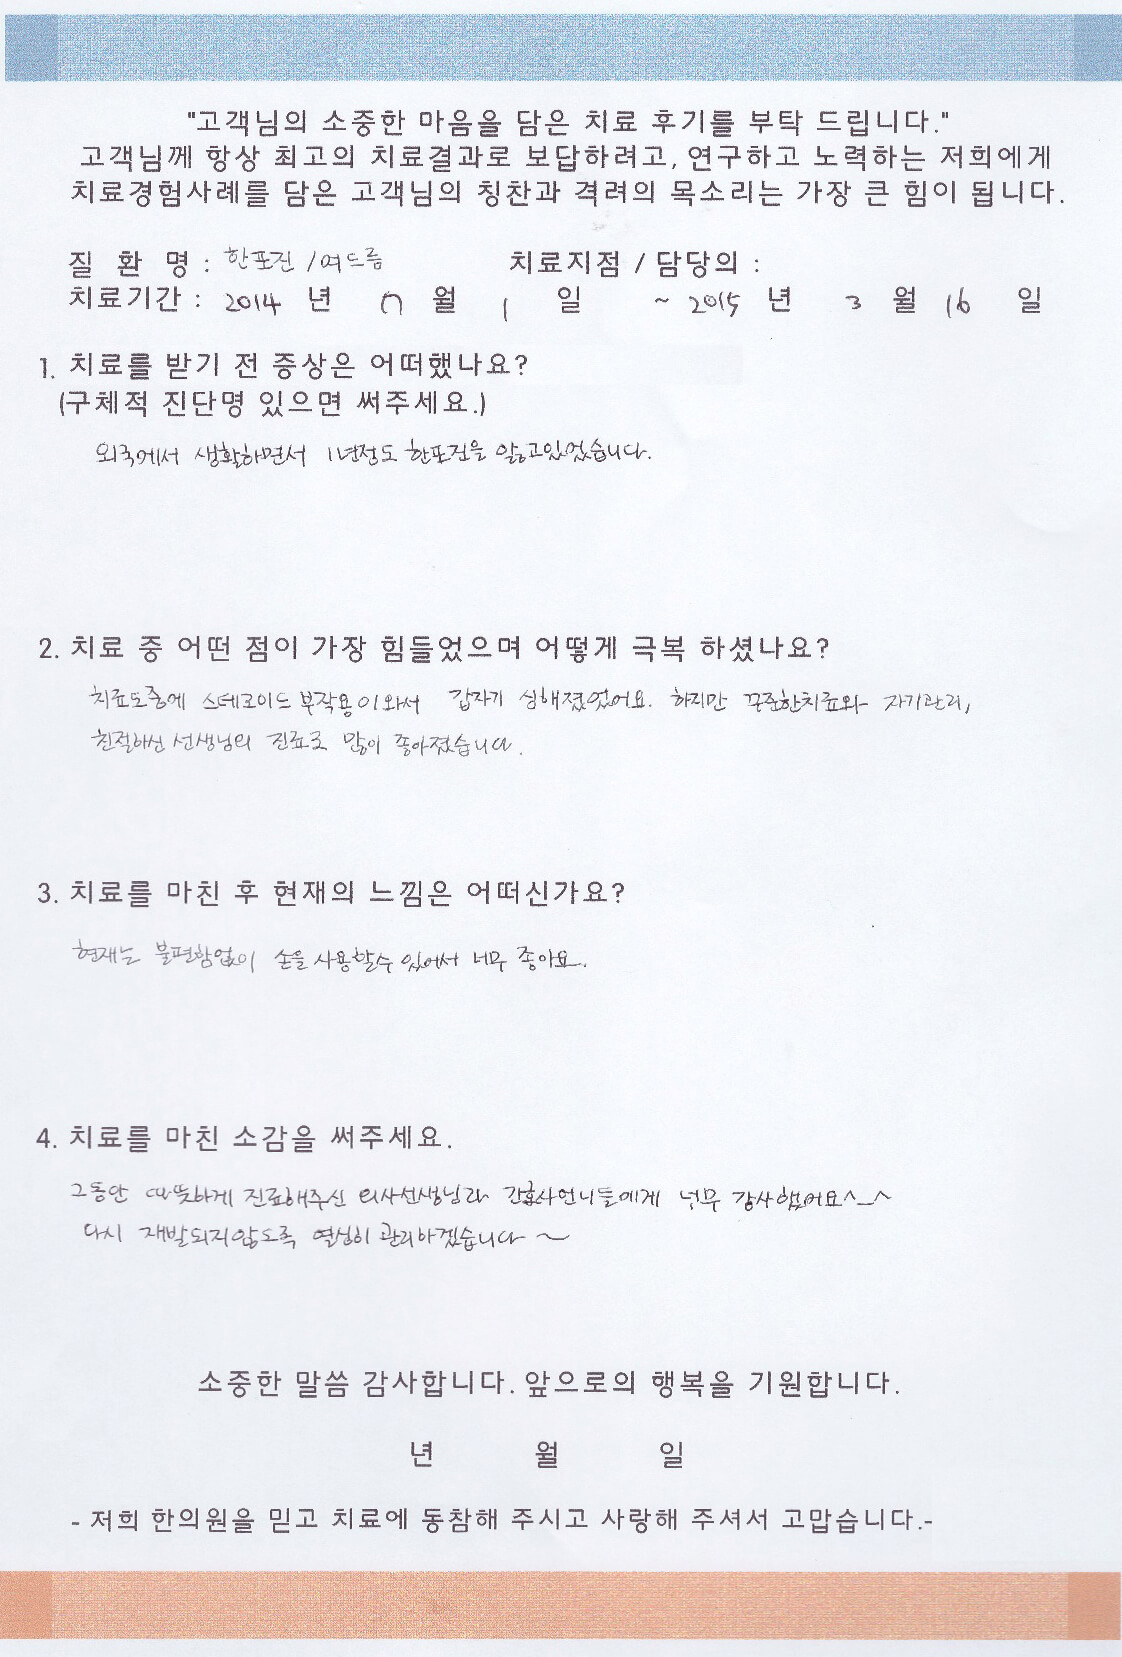 "고객님의 소중한 마음을 담은 치료 후기를 부탁 드립니다."
고객님께 항상 최고의 치료결과로 보답하려고, 연구하고 노력하는 저희에게
치료경험사례를 담은 고객님의 칭찬과 격려의 목소리는 가장 큰 힘이 됩니다.
질 환 명 : 한포진 / 여드름 치료지점 / 담당의 :
치료기간 : 2014 년 7 월 1 일 ~ 2015 년 3 월 16 일
1. 치료를 받기 전 증상은 어떠했나요?
(구체적 진단명 있으면 써주세요.)
외국에서 생활하면서 1년정도 한포진을 앓고있었습니다.
2. 치료 중 어떤 점이 가장 힘들었으며 어떻게 극복 하셨나요?
치료도중에 스테로이드 부작용이와서 갑자기 심해졌었어요. 하지만 꾸준한치료와 자기관리,
친절하신 선생님의 진료로 많이 좋아졌습니다.
3. 치료를 마친 후 현재의 느낌은 어떠신가요?
현재는 불편함없이 손을 사용할수 있어서 너무 좋아요.
4. 치료를 마친 소감을 써주세요.
그동안 따뜻하게 진료해주신 의사선생님과 간호사언니들에게 너무 감사했어요^_^
다시 재발되지않도록 열심히 관리하겠습니다 ~
소중한 말씀 감사합니다. 앞으로의 행복을 기원합니다.
년 월 일
- 저희 한의원을 믿고 치료에 동참해 주시고 사랑해 주셔서 고맙습니다.-